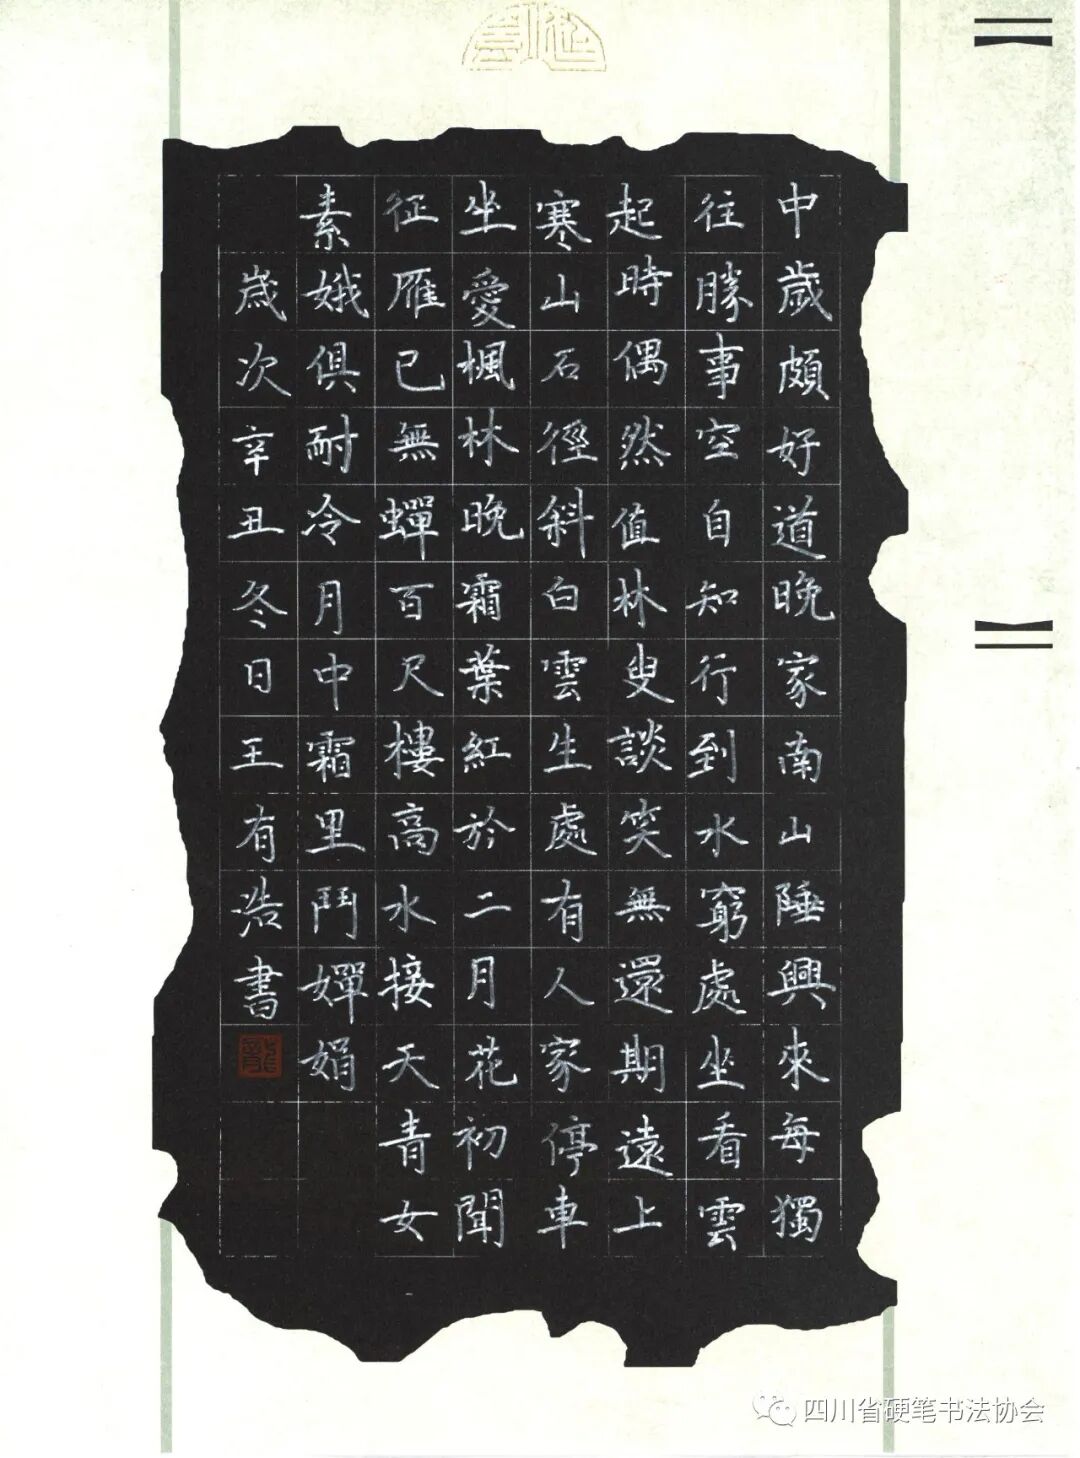 中歲頗好道晚家南山陲興來每獨
往勝事空自知行到水窮處坐看雲
起時偶然值林叟談笑無還期遠上
寒山石徑斜白雲生處有人家停車
坐愛楓林晚霜葉紅於二月花初聞
征雁已無蟬百尺樓高水接天青女
素娥俱耐冷月中霜里鬥嬋娟
歲次辛丑冬日王有浩書
四川省硬笔书法协会